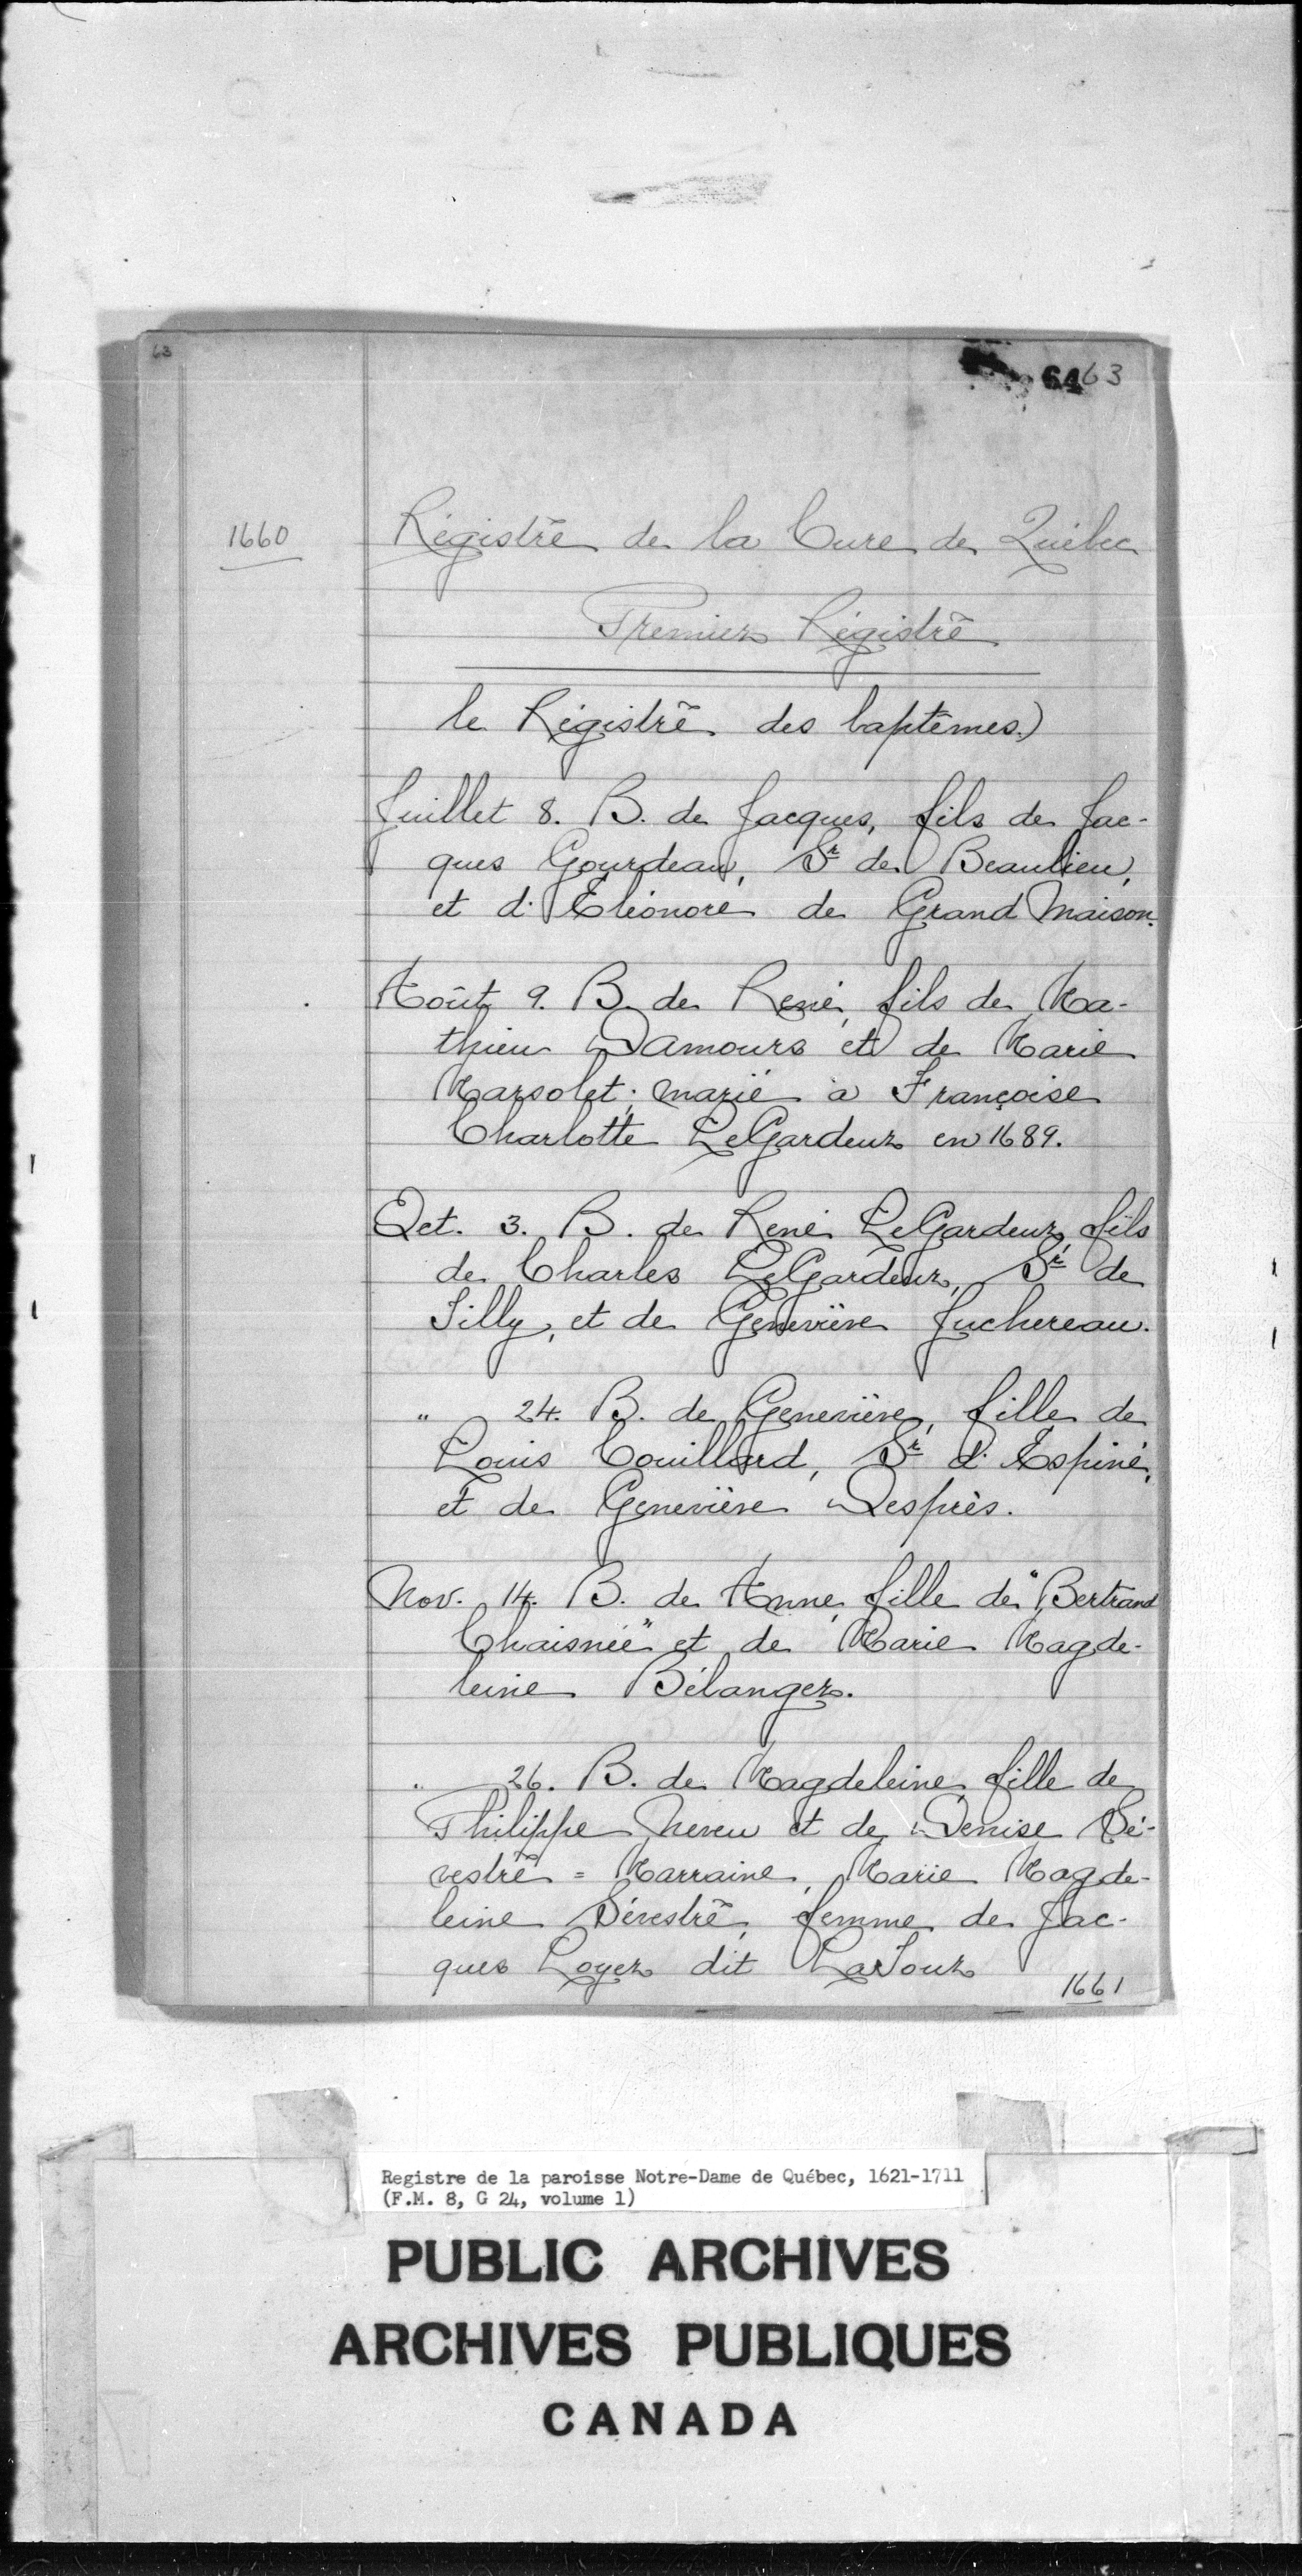 63
6463
1660
Régistre de la Cure de Québec
Premier Régistre
le Régistre des baptêmes.)
Juillet 8. B. de Jacques, fils de Jac-
ques Gourdeau, Sr de Beaulieu,
et d'Eléonore de Grand Maison.
Août 9. B. de René, fils de Ma-
thieu Damours et de Marie
Marsolet; marié à Françoise
Charlotte LeGardeur en 1689.
Oct. 3. B. de René LeGardeur, fils
de Charles LeGardeur, Sr de
Tilly, et de Geneviève Juchereau.
" 24. B. de Geneviève, fille de
Louis Couillard, Sr d'Espiné,
et de Geneviève Després.
Nov. 14. B. de Anne, fille de "Bertrand
Chaisnée" et de Marie Magde-
leine Bélanger.
" 26. B. de Magdeleine, fille de
Philippe Neveu et de Denise Sé-
vestre = Marraine, Marie Magde-
leine Sévestre, femme de Jac-
ques Loyer dit LaTour
1661
Registre de la paroisse Notre-Dame de Québec, 1621-1711
(F.M. 8, G 24, volume 1)
PUBLIC ARCHIVES
ARCHIVES PUBLIQUES
CANADA